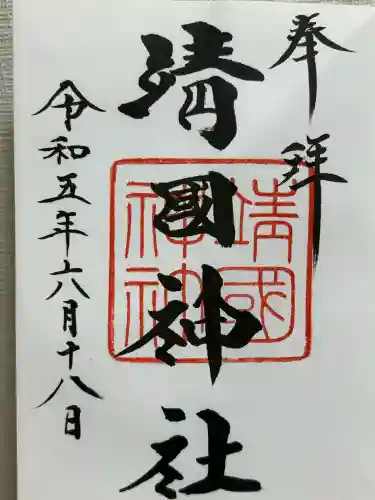 奉拝
靖國神社
靖國神社
令和五年六月十八日